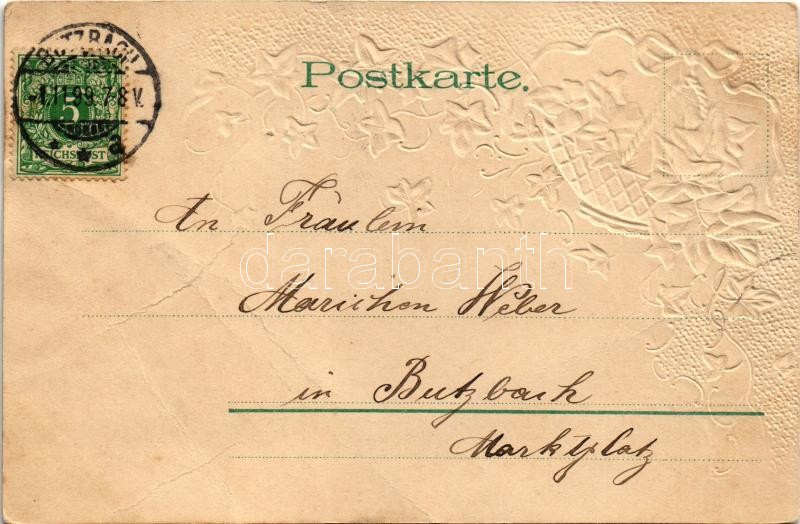 BUTZBACH
-1.11.99.7-8V.
5
REICHSPOST
Postkarte.
An Fräulein
Mariechen Weber
in Butzbach
Marktplatz
darabanth